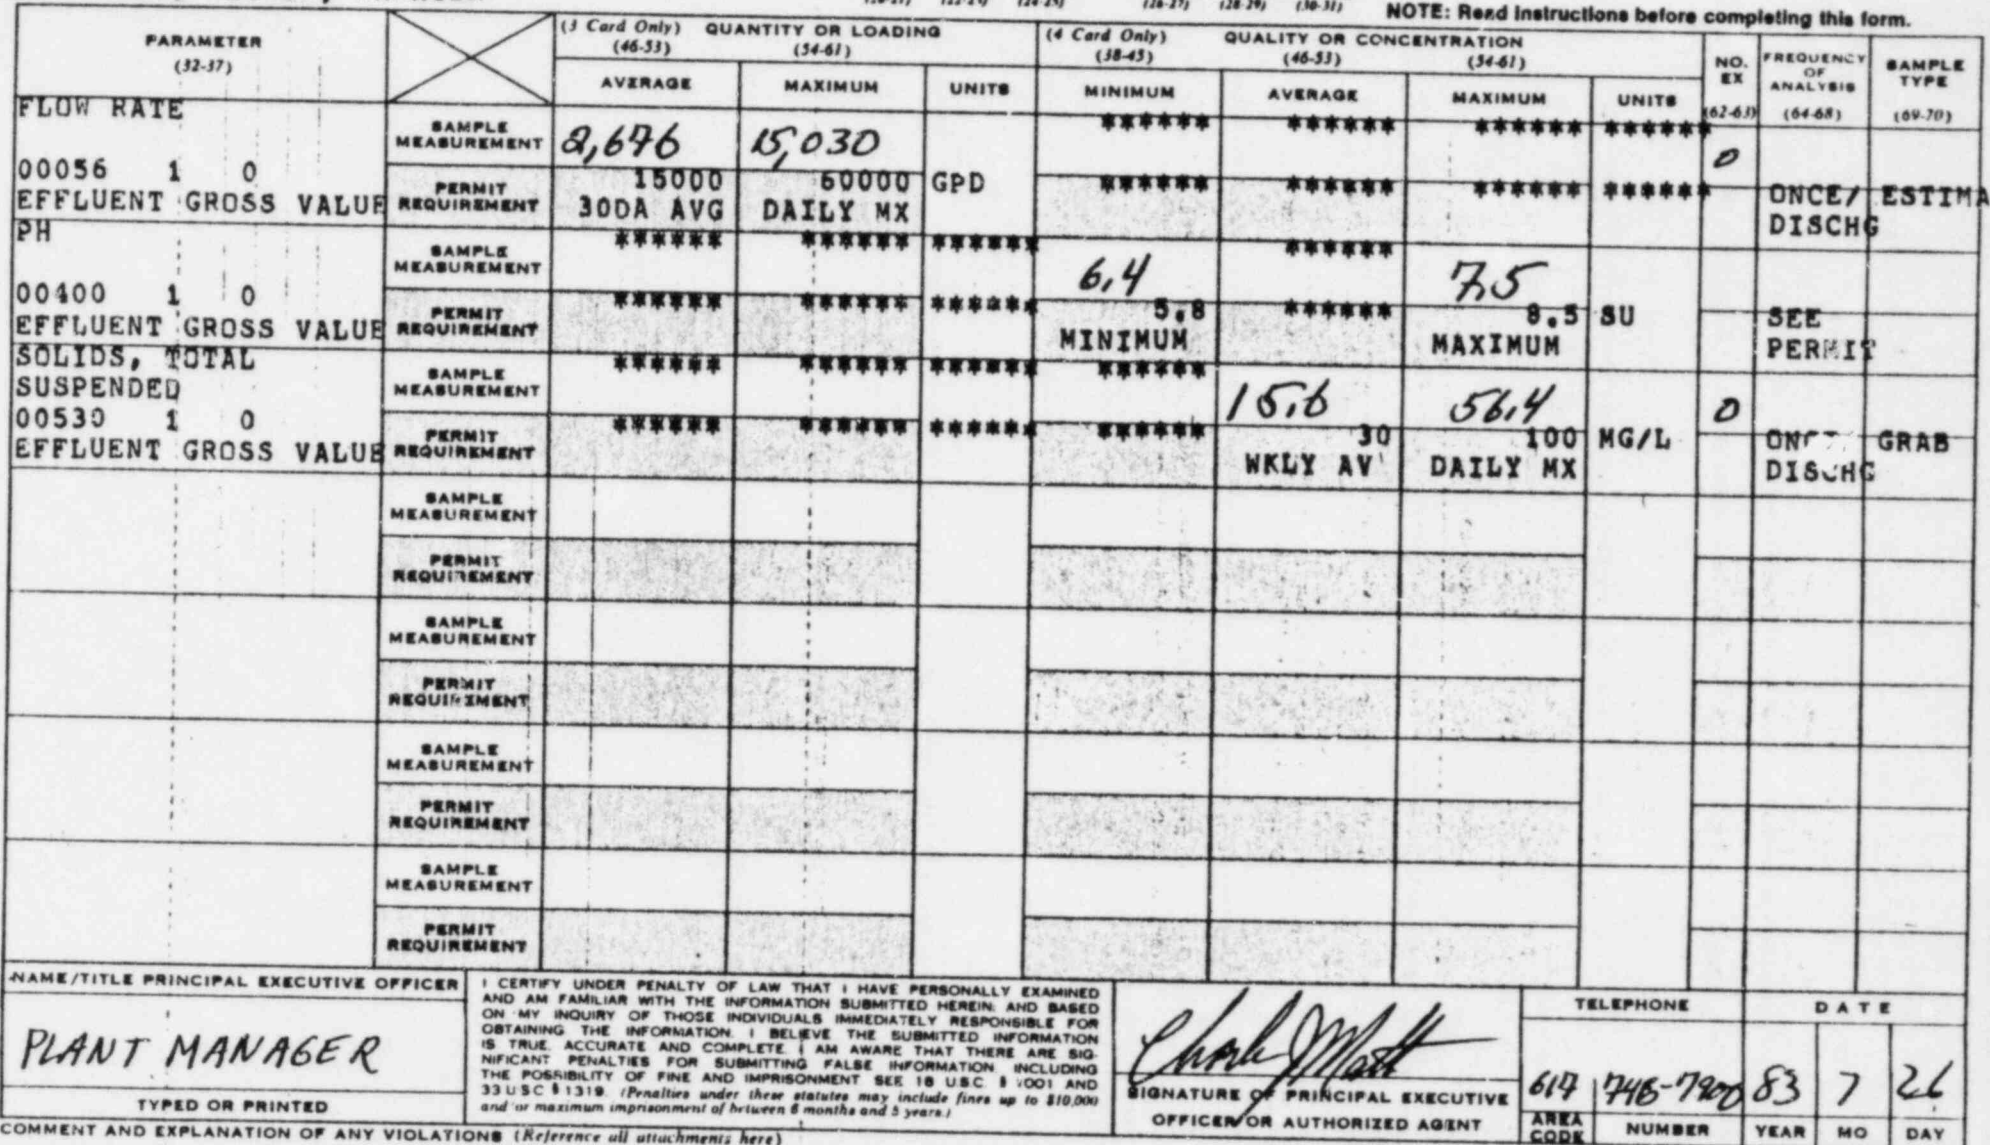 NOTE: Read instructions before completing this form.
PARAMETER
(32-37)
(3 Card Only) QUANTITY OR LOADING
(46-53) (54-61)
(4 Card Only) QUALITY OR CONCENTRATION
(38-45) (46-53) (54-61)
NO. EX
(62-63)
FREQUENCY OF ANALYSIS
(64-68)
SAMPLE TYPE
(69-70)
AVERAGE MAXIMUM UNITS MINIMUM AVERAGE MAXIMUM UNITS
FLOW RATE
SAMPLE MEASUREMENT 2,676 15,030 ****** ****** ****** ****** 0
00056 1 0
EFFLUENT GROSS VALUE
PERMIT REQUIREMENT 15000 60000 GPD ****** ****** ****** ****** ONCE/ ESTIMA
30DA AVG DAILY MX DISCHG
PH
SAMPLE MEASUREMENT ****** ****** ****** 6.4 ****** 7.5
00400 1 0
EFFLUENT GROSS VALUE
PERMIT REQUIREMENT ****** ****** ****** 5.8 ****** 8.5 SU SEE
MINIMUM MAXIMUM PERMIT
SOLIDS, TOTAL
SUSPENDED
SAMPLE MEASUREMENT ****** ****** ****** ****** 15.6 56.4 0
00530 1 0
EFFLUENT GROSS VALUE
PERMIT REQUIREMENT ****** ****** ****** ****** 30 100 MG/L GRAB
WKLY AV DAILY MX DISCHG
SAMPLE MEASUREMENT
PERMIT REQUIREMENT
SAMPLE MEASUREMENT
PERMIT REQUIREMENT
SAMPLE MEASUREMENT
PERMIT REQUIREMENT
SAMPLE MEASUREMENT
PERMIT REQUIREMENT
NAME/TITLE PRINCIPAL EXECUTIVE OFFICER
PLANT MANAGER
TYPED OR PRINTED
I CERTIFY UNDER PENALTY OF LAW THAT I HAVE PERSONALLY EXAMINED
AND AM FAMILIAR WITH THE INFORMATION SUBMITTED HEREIN; AND BASED
ON MY INQUIRY OF THOSE INDIVIDUALS IMMEDIATELY RESPONSIBLE FOR
OBTAINING THE INFORMATION, I BELIEVE THE SUBMITTED INFORMATION
IS TRUE, ACCURATE AND COMPLETE. I AM AWARE THAT THERE ARE SIG-
NIFICANT PENALTIES FOR SUBMITTING FALSE INFORMATION, INCLUDING
THE POSSIBILITY OF FINE AND IMPRISONMENT SEE 18 U.S.C. § 1001 AND
33 USC § 1319. (Penalties under these statutes may include fines up to $10,000
and or maximum imprisonment of between 6 months and 5 years.)
SIGNATURE OF PRINCIPAL EXECUTIVE
OFFICER OR AUTHORIZED AGENT
TELEPHONE
617 746-7900
AREA CODE NUMBER
DATE
83 7 26
YEAR MO DAY
COMMENT AND EXPLANATION OF ANY VIOLATIONS (Reference all attachments here)